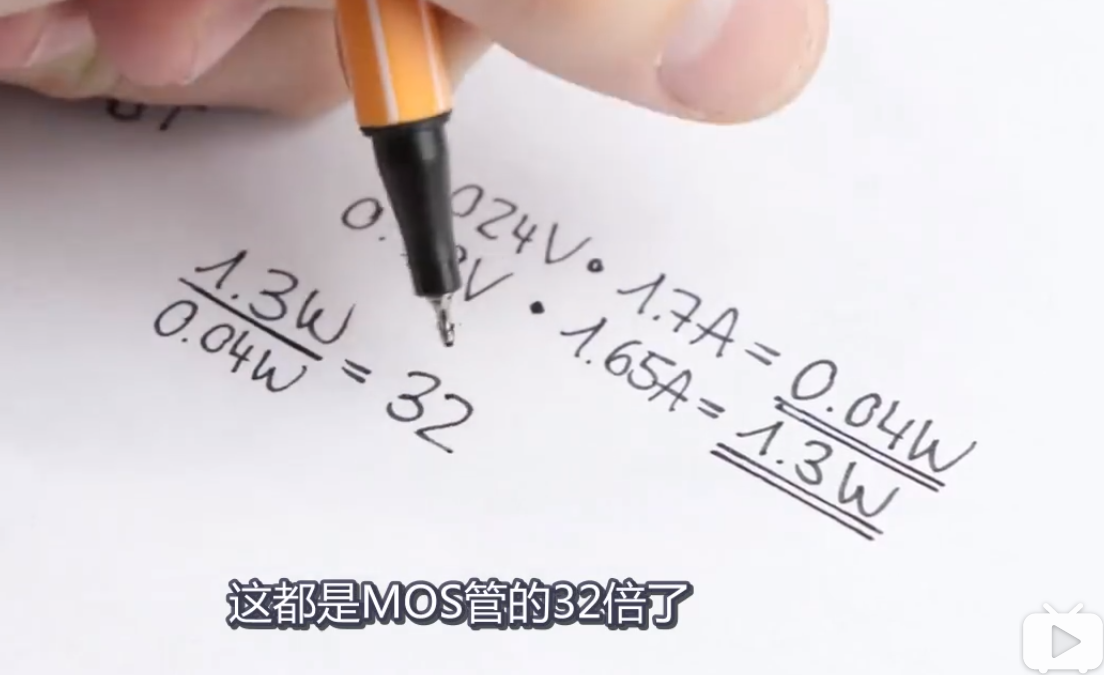 024V • 1.7A = 0.04W
V • 1.65A = 1.3W
1.3W
0.04W
= 32
这都是MOS管的32倍了